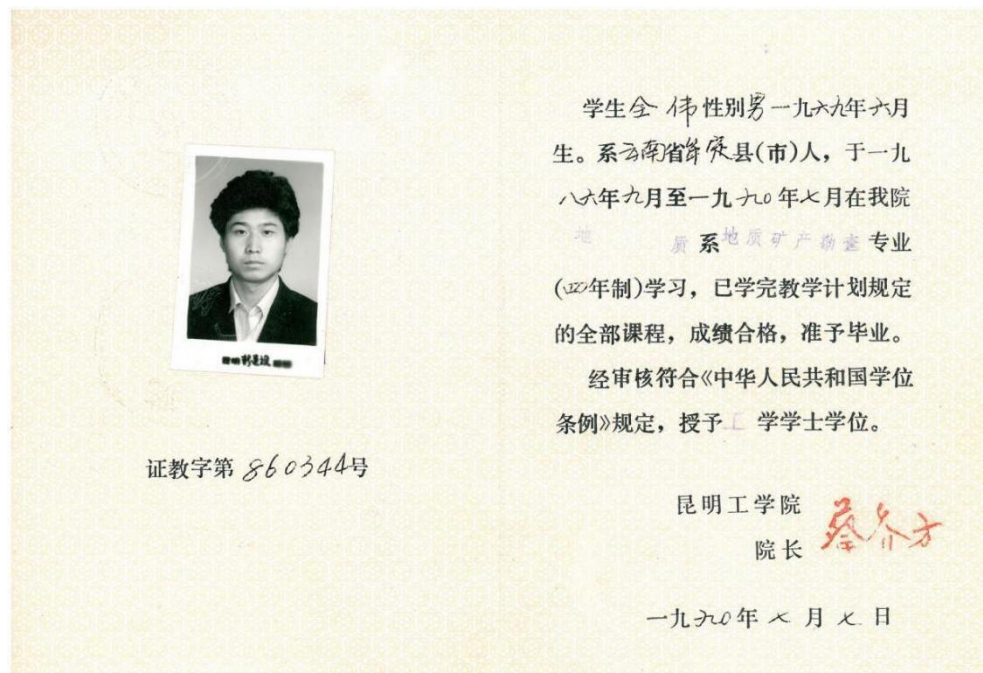 证教字第860344号
学生全伟性别男一九六九年六月
生。系云南省牟定县(市)人，于一九
八六年九月至一九九〇年七月在我院
地质系地质矿产勘查专业
(四年制)学习，已学完教学计划规定
的全部课程，成绩合格，准予毕业。
经审核符合《中华人民共和国学位
条例》规定，授予工学学士学位。
昆明工学院
院长 蔡乔方
一九九〇年七月七日